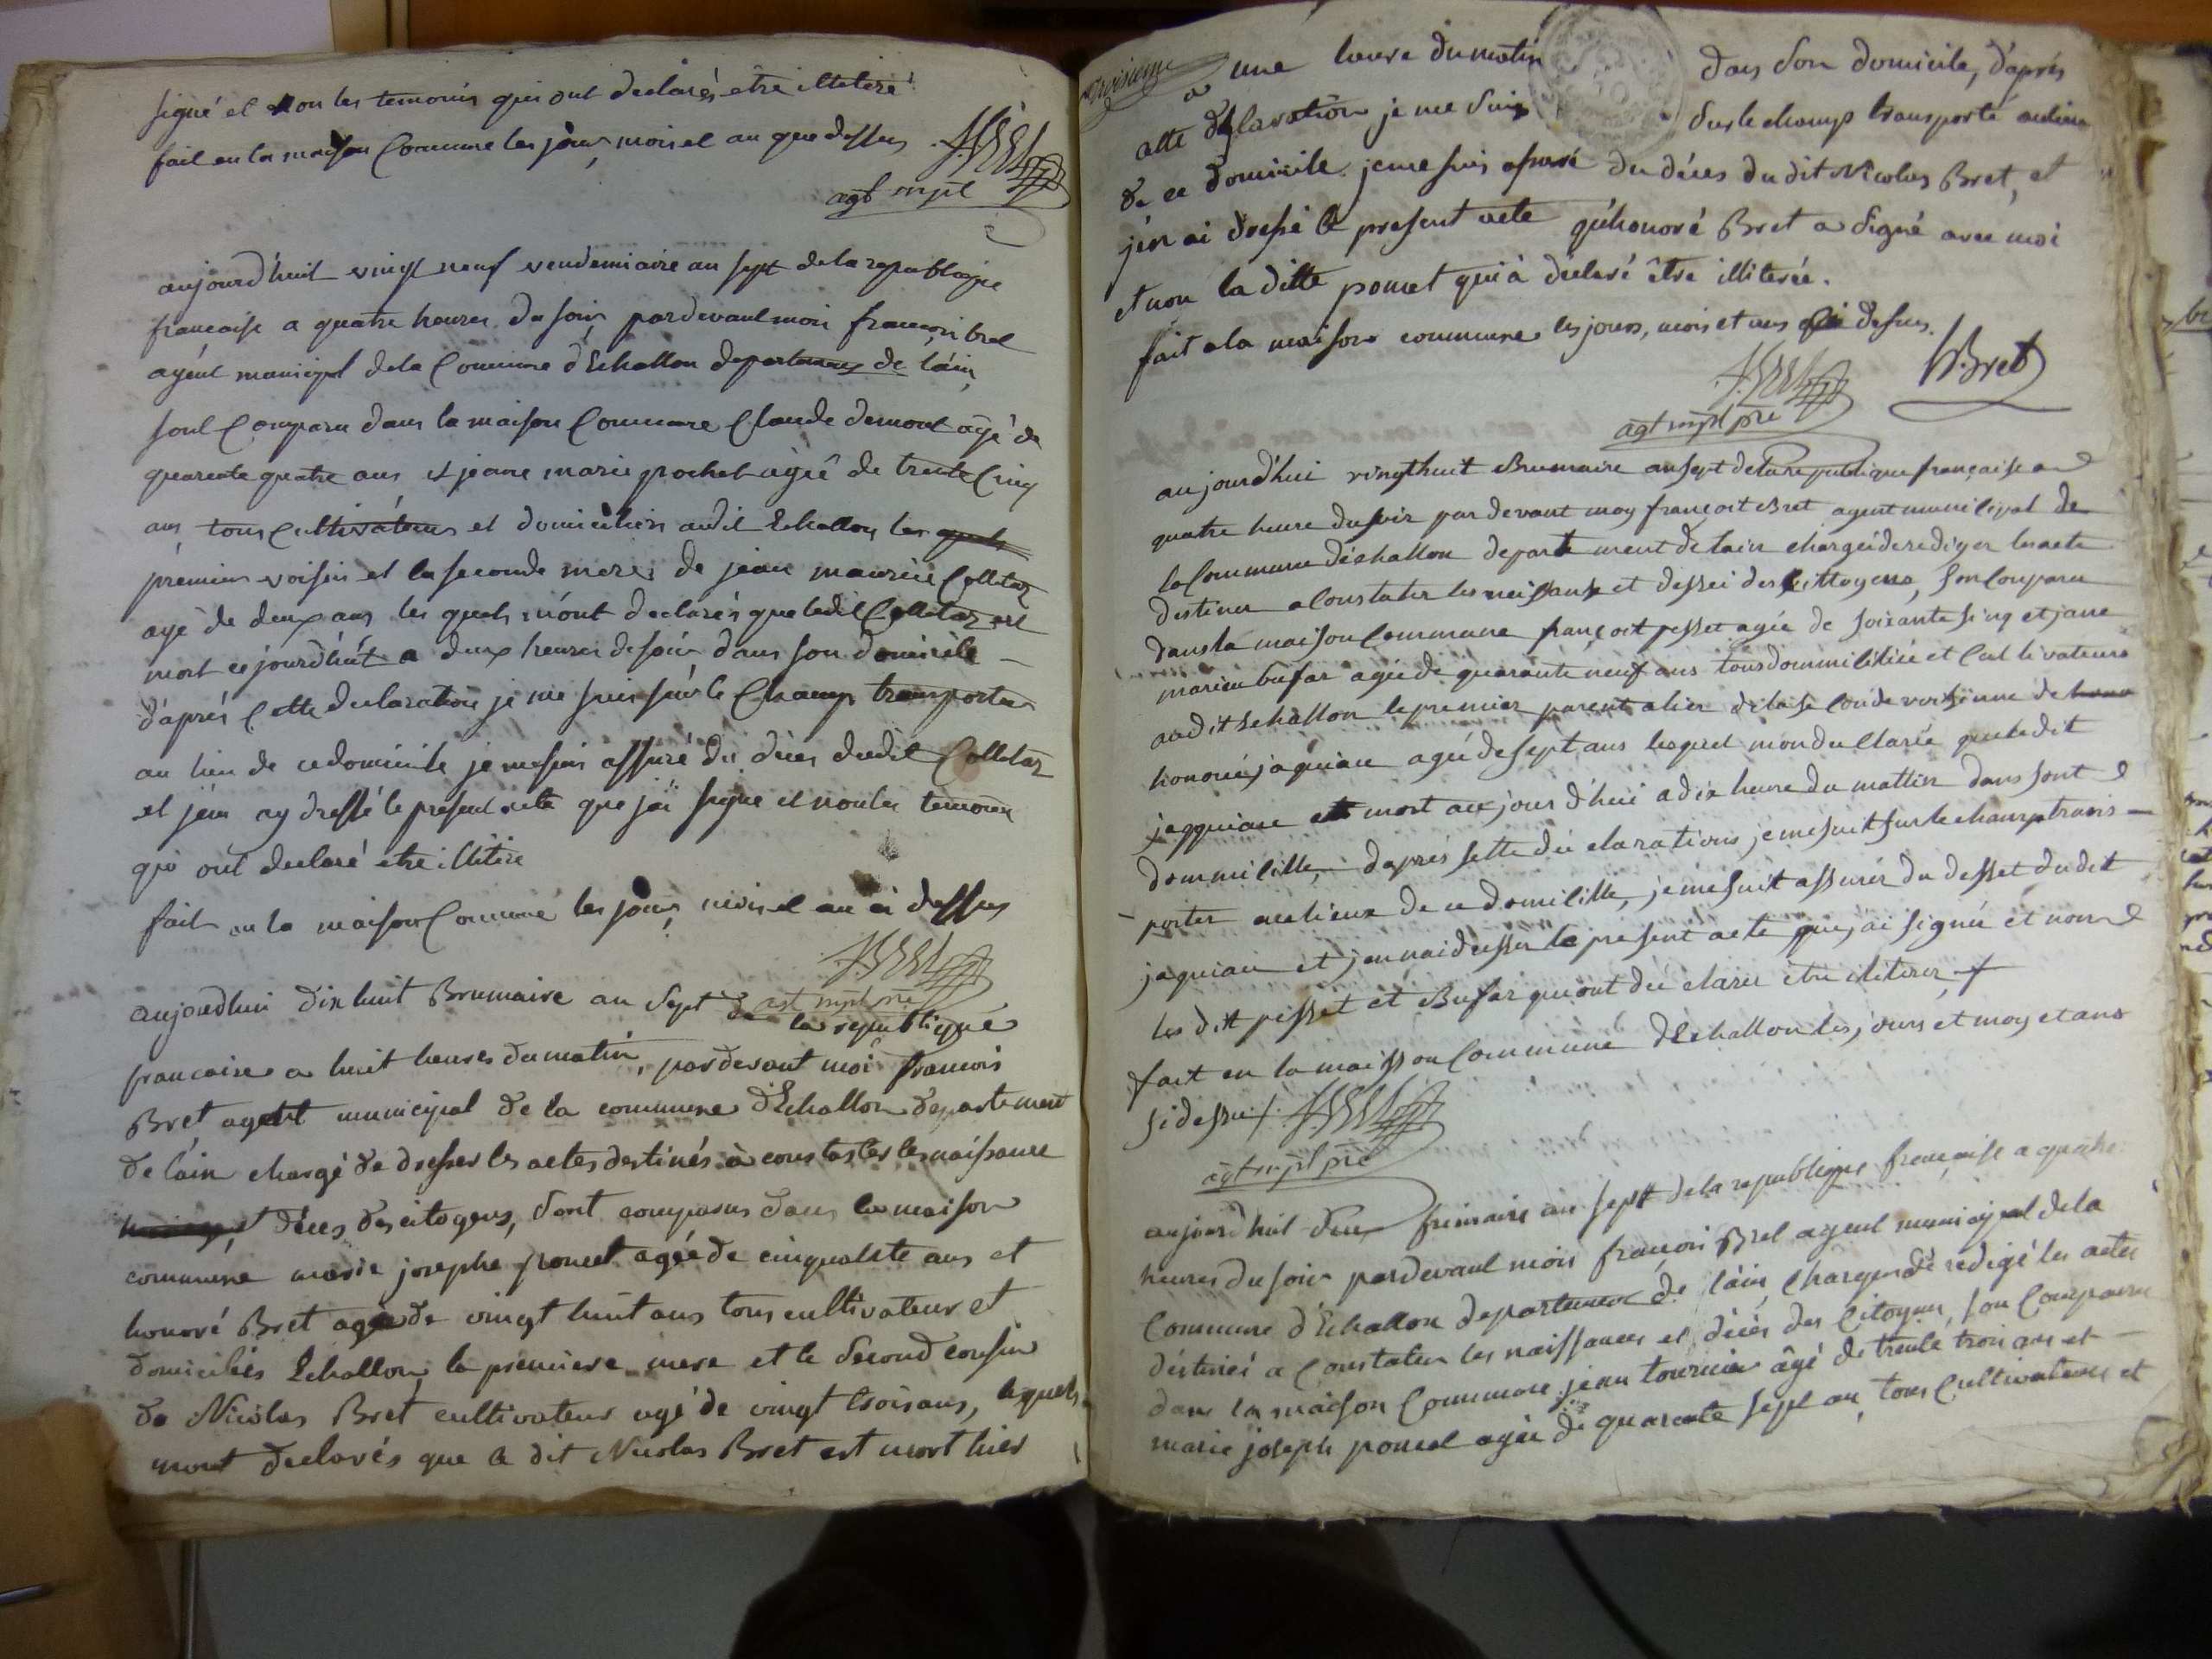 signé et non les temoins qui ont declarés etre illiteré
fait en la maison Commune les jour, mois et an que dessus
agt mpl
aujourd'huit vingt neuf vendemiaire an sept de la republique
francaise a quatre heures du soir, pardevant moi francois bret
agent municipal de la Commune d'Echallon departement de l'ain,
sont Comparu dans la maison Commune Claude demont agé de
quarente quatre ans et jeane marie prochet agée de trente Cinq
ans tous Cultivateurs et domiciliers audit Echallon les quels
premier voisin et la seconde mere de jean maurice Colletaz
agé de deux ans les quels m'ont declarés que ledit Colletaz est
mort ce jourd'huit a deux heures de soir dans son domicile
d'aprés Cette declaration je me suis sur le Champ transporter
au lieu de ce domicile je me suis assuré du déces dudit Colletaz
et j'en ay dressé le present acte que j'ai signe et non les temoins
qui ont declaré etre illitere
fait en la maison Commune les jour, mois et an ci dessus
agt mpl pre
aujourdhui dix huit Brumaire an sept de la republique
francaise a huit heures du matin, pardevant moi francois
Bret agent municipal de la commune d'Echallon departement
de l'ain chargé de dresser les actes destinés à constater les naissance
et déces des citoyens, sont comparus dans la maison
commune marie josephe poncet agée de cinquante ans et
honoré Bret agé de vingt huit ans tous cultivateur et
domiciliés Echallon, la premiere mere et le second cousin
de Nicolas Bret cultivateur agé de vingt trois ans, lesquels
mont declarés que le dit Nicolas Bret est mort hier
troisieme
a une heure du matin dans son domicile, d'aprés
cette declaration je me suis sur le champ transporté au lieu
de ce domicile. je me suis assuré du déces du dit Nicolas Bret, et
j'en ai dressé le present acte qu'honoré Bret a signé avec moi
et non la ditte poncet qui à déclaré être illiterée.
fait a la maison commune les jours, mois et ans ci dessus.
h Bret
agt mpl pre
aujourd'hui vingthuit Brumaire an sept de la republique française a
quatre heure du soir par devant moy françoit Bret agent municipal de
la Commune d'échallon departement de lain chargé de rediger les acte
destiner a Constater les naissanse et dessei des Cittoyens, son Comparu
dans la maison Commune françoit pesset agée de soixante sinq et jane
marie bufar agée de quarante neuf ans tous dommilitiée et Cultivateurs
audit Echallon le premier parent alier et la se Conde voisinne de
honoré jaquiau agé de sept ans lesquel mon du Clarée que ledit
jaqquiau est mort au jour d'hui a dix heure du mattin dans sont
dommilille, daprés sette dé clarations, je me suit sur le champ trans-
porter au lieux de ce domilille, je me suit assurér du desset dudit
jaquiau et jen nai dresser le present acte que j'ai signée et non
les dit pesset et Bufar qui ont dé clarer être iliterer
fait en la maisson Commune d'Echallon les jours et moy et ans
si dessu.
agt mpl pre
aujourd'huit deux frimaire an sept de la republique francaise a quatre
heures du soir pardevant moi francoi Bret agent municipal de la
Commune d'Echallon departement de l'ain, Charger de redigé les actes
déstinés a Constater les naissances et décés des Citoyens, son Comparu
dans la maison Commune jean tournier âgé de trente trois ans et
marie joseph poncet agée de quarente sept an, tous Cultivateurs et